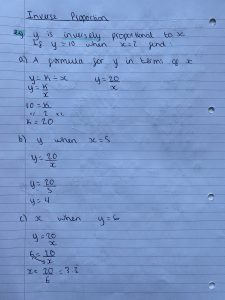 Inverse Proportion
eg y is inversely proportional to x
If y = 10 when x = 2 find:
a) A formula for y in terms of x
y = k ÷ x    y = 20/x
y = k/x
10 = k/2
k = 20
b) y when x = 5
y = 20/x
y = 20/5
y = 4
c) x when y = 6
y = 20/x
6 = 20/x
x = 20/6 = 3.3